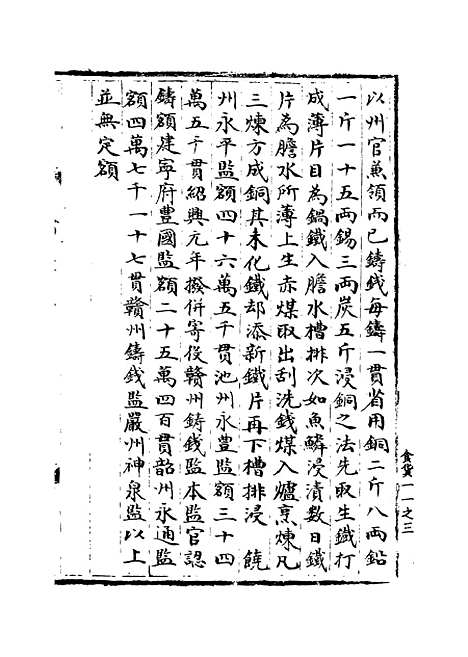 以州官兼領而已鑄錢每鑄一貫省用銅二斤八兩鉛
一斤一十五兩錫三兩炭五斤浸銅之法先取生鐵打
成薄片目為鍋鐵入膽水槽排次如魚鱗浸漬數日鐵
片為膽水所薄上生赤煤取出刮洗錢煤入爐烹煉凡
三煉方成銅其未化鐵却添新鐵片再下槽排浸　饒
州永平監額四十六萬五千貫池州永豐監額三十四
萬五千貫紹興元年撥併寄役贛州鑄錢監本監官認
鑄額建寧府豐國監額二十五萬四百貫韶州永通監
額四萬七千一十七貫贛州鑄錢監嚴州神泉監以上
並無定額
食貨一一之三